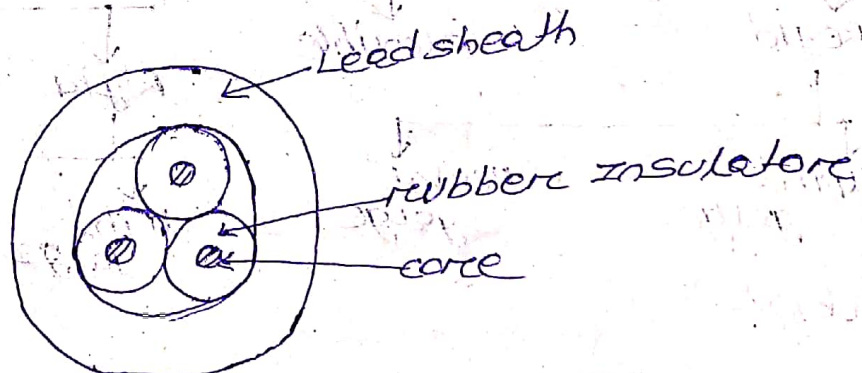 Lead sheath
rubber Insulator
core